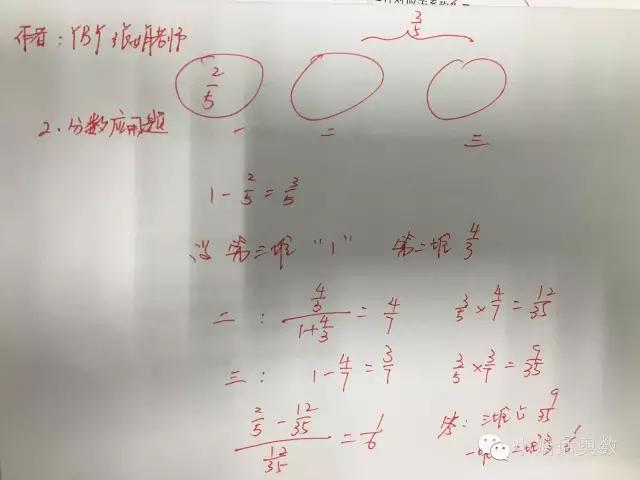 作者：YBY 张晴老师
3/5
2/5
2、分数应用题 一 二 三
1 - 2/5 = 3/5
设 第三堆 "1" 第二堆 4/3
二： (4/3)/(1+4/3) = 4/7 3/5 × 4/7 = 12/35
三： 1 - 4/7 = 3/7 3/5 × 3/7 = 9/35
(2/5 - 12/35)/(12/35) = 1/6 答：三堆占 9/35
小泼话奥数